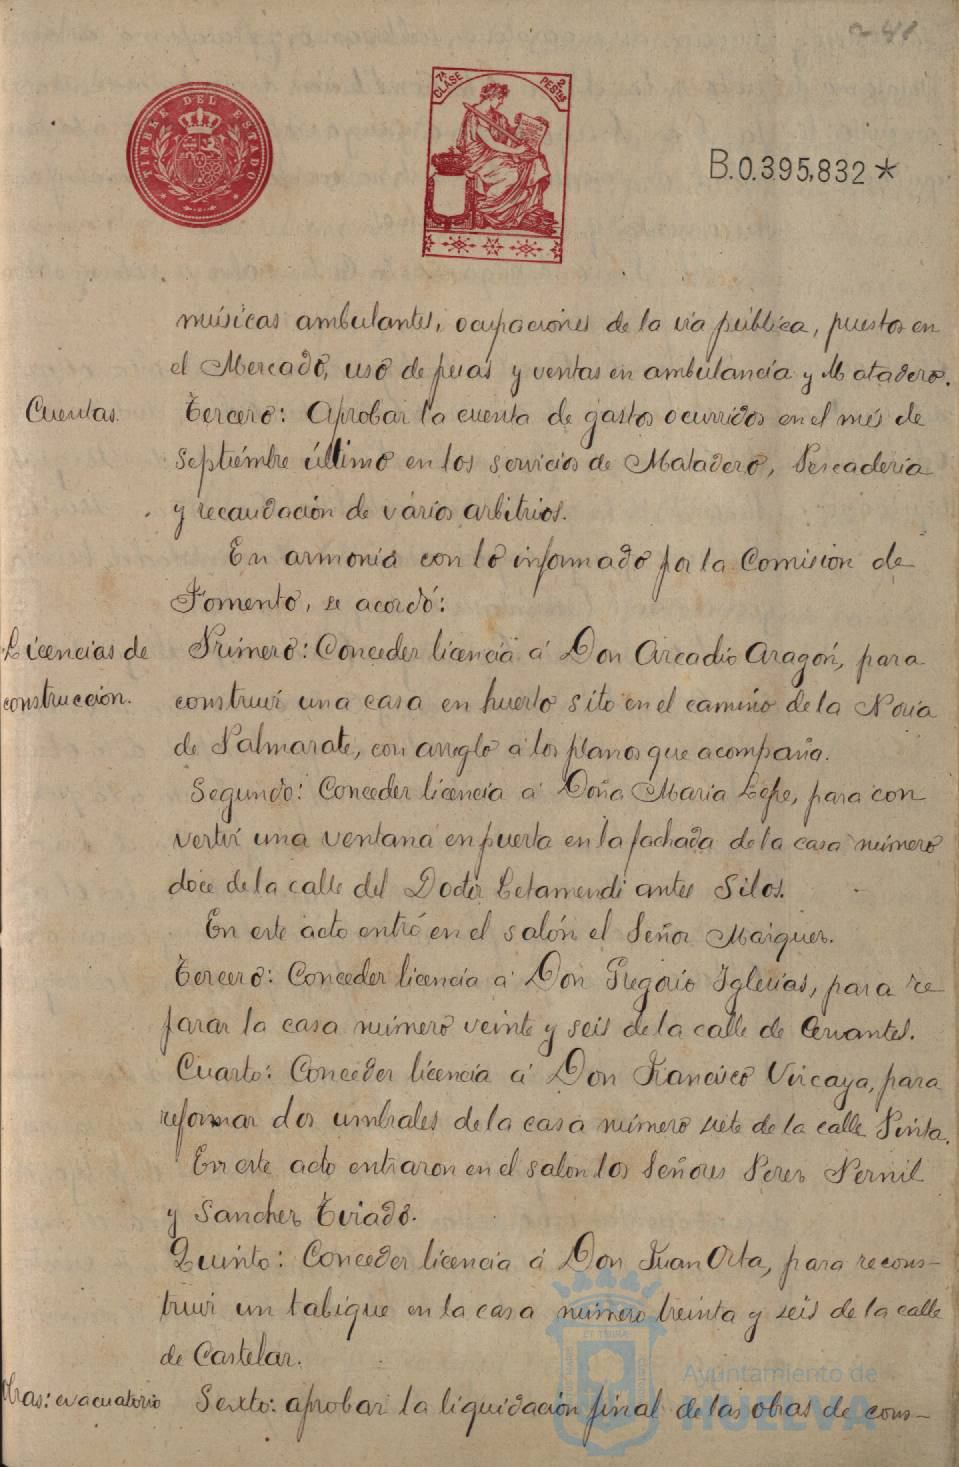 241
TIMBRE DEL ESTADO
7ª CLASE
2 PESTAS
B.0.395,832*
músicas ambulantes, ocupaciones de la via pública, puestos en
el Mercado, uso de pesas y ventas en ambulancia y Matadero.
Cuentas.
Tercero: Aprobar la cuenta de gastos ocurridos en el més de
Septiémbre último en los servicios de Matadero, Pescaderia
y recaudación de vários arbitrios.
En armonia con lo informado por la Comision de
Fomento, se acordó:
Licencias de
construccion.
Primero: Conceder licencia á Don Arcadio Aragón, para
construir una casa en huerto sito en el camino de la Noria
de Palmarate, con arreglo á los planos que acompaña.
Segundo: Conceder licencia á Doña Maria Lepe, para con
vertir una ventana en puerta en la fachada de la casa número
doce de la calle del Doctor Letamendi antes Silos.
En este acto entró en el salón el Señor Maiquez.
Tercero: Conceder licencia á Don Gregorio Iglesias, para re
parar la casa número veinte y seis de la calle de Cervantes.
Cuarto: Conceder licencia á Don Francisco Vizcaya, para
reformar dos umbrales de la casa número siete de la calle Pinta.
En este acto entraron en el salon los Señores Perez Pernil
y Sanchez Tviado.
Quinto: Conceder licencia á Don Juan Orta, para recons-
truir un tabique en la casa número treinta y seis de la calle
de Castelar.
Obras: evacuatorio
Sexto: aprobar la liquidación final de las obras de cons-
Ayuntamiento de
HUELVA